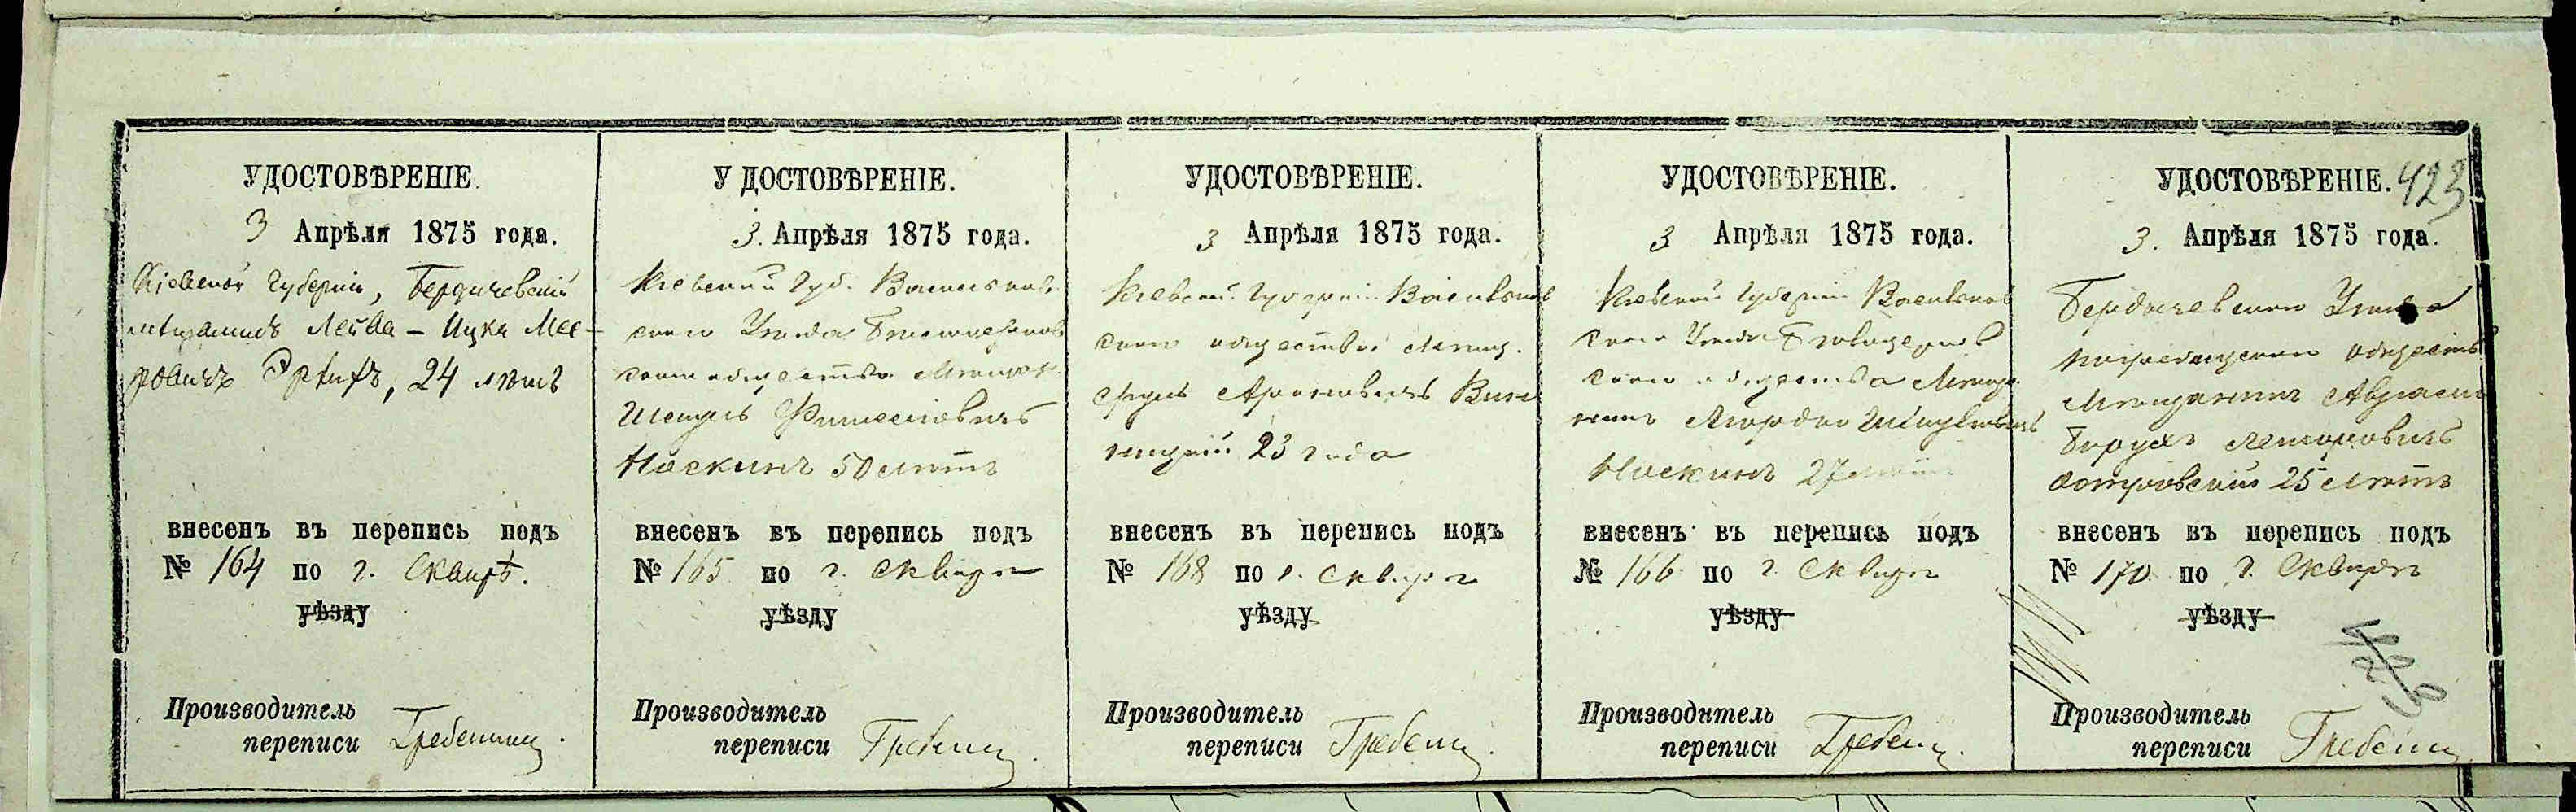 УДОСТОВѢРЕНІЕ.
3 Апрѣля 1875 года.
Кіевской Губерніи, Бердичевскій
мѣщанинъ Лейба - Ицка Мее-
ровичъ 24 лѣтъ
внесенъ въ перепись подъ
№ 164 по г. Сквирѣ.
уѣзду
Производитель
переписи
УДОСТОВѢРЕНІЕ.
3. Апрѣля 1875 года.
Кіевской Губ. Васильков-
скаго Уѣзда Бѣлоцерков
скаго общества Мѣщан.
Шмуль
Носкинъ 50 лѣтъ
внесенъ въ перепись подъ
№ 165 по г. Сквирѣ
уѣзду
Производитель
переписи
УДОСТОВѢРЕНІЕ.
3 Апрѣля 1875 года.
Кіевской Губерніи Васильков
скаго общества Мѣщ.
Срулъ Ароновичъ Вин
ницкій 23 года
внесенъ въ перепись подъ
№ 168 по г. Сквирѣ
уѣзду
Производитель
переписи
УДОСТОВѢРЕНІЕ.
3 Апрѣля 1875 года.
Кіевской Губерніи Васильков
скаго Уѣзда Бѣлоцерков
скаго общества Мѣща
нинъ Мордко Шмулевичъ
Носкинъ 27 лѣтъ
внесенъ въ перепись подъ
№ 166 по г. Сквирѣ
уѣзду
Производитель
переписи
УДОСТОВѢРЕНІЕ. 423
3. Апрѣля 1875 года.
Бердичевскаго Уѣзда
Погребищскаго обществ
Мѣщанинъ Авраам
Борухъ
Островскій 25 лѣтъ
внесенъ въ перепись подъ
№ 170 по г. Сквирѣ
уѣзду
Производитель
переписи